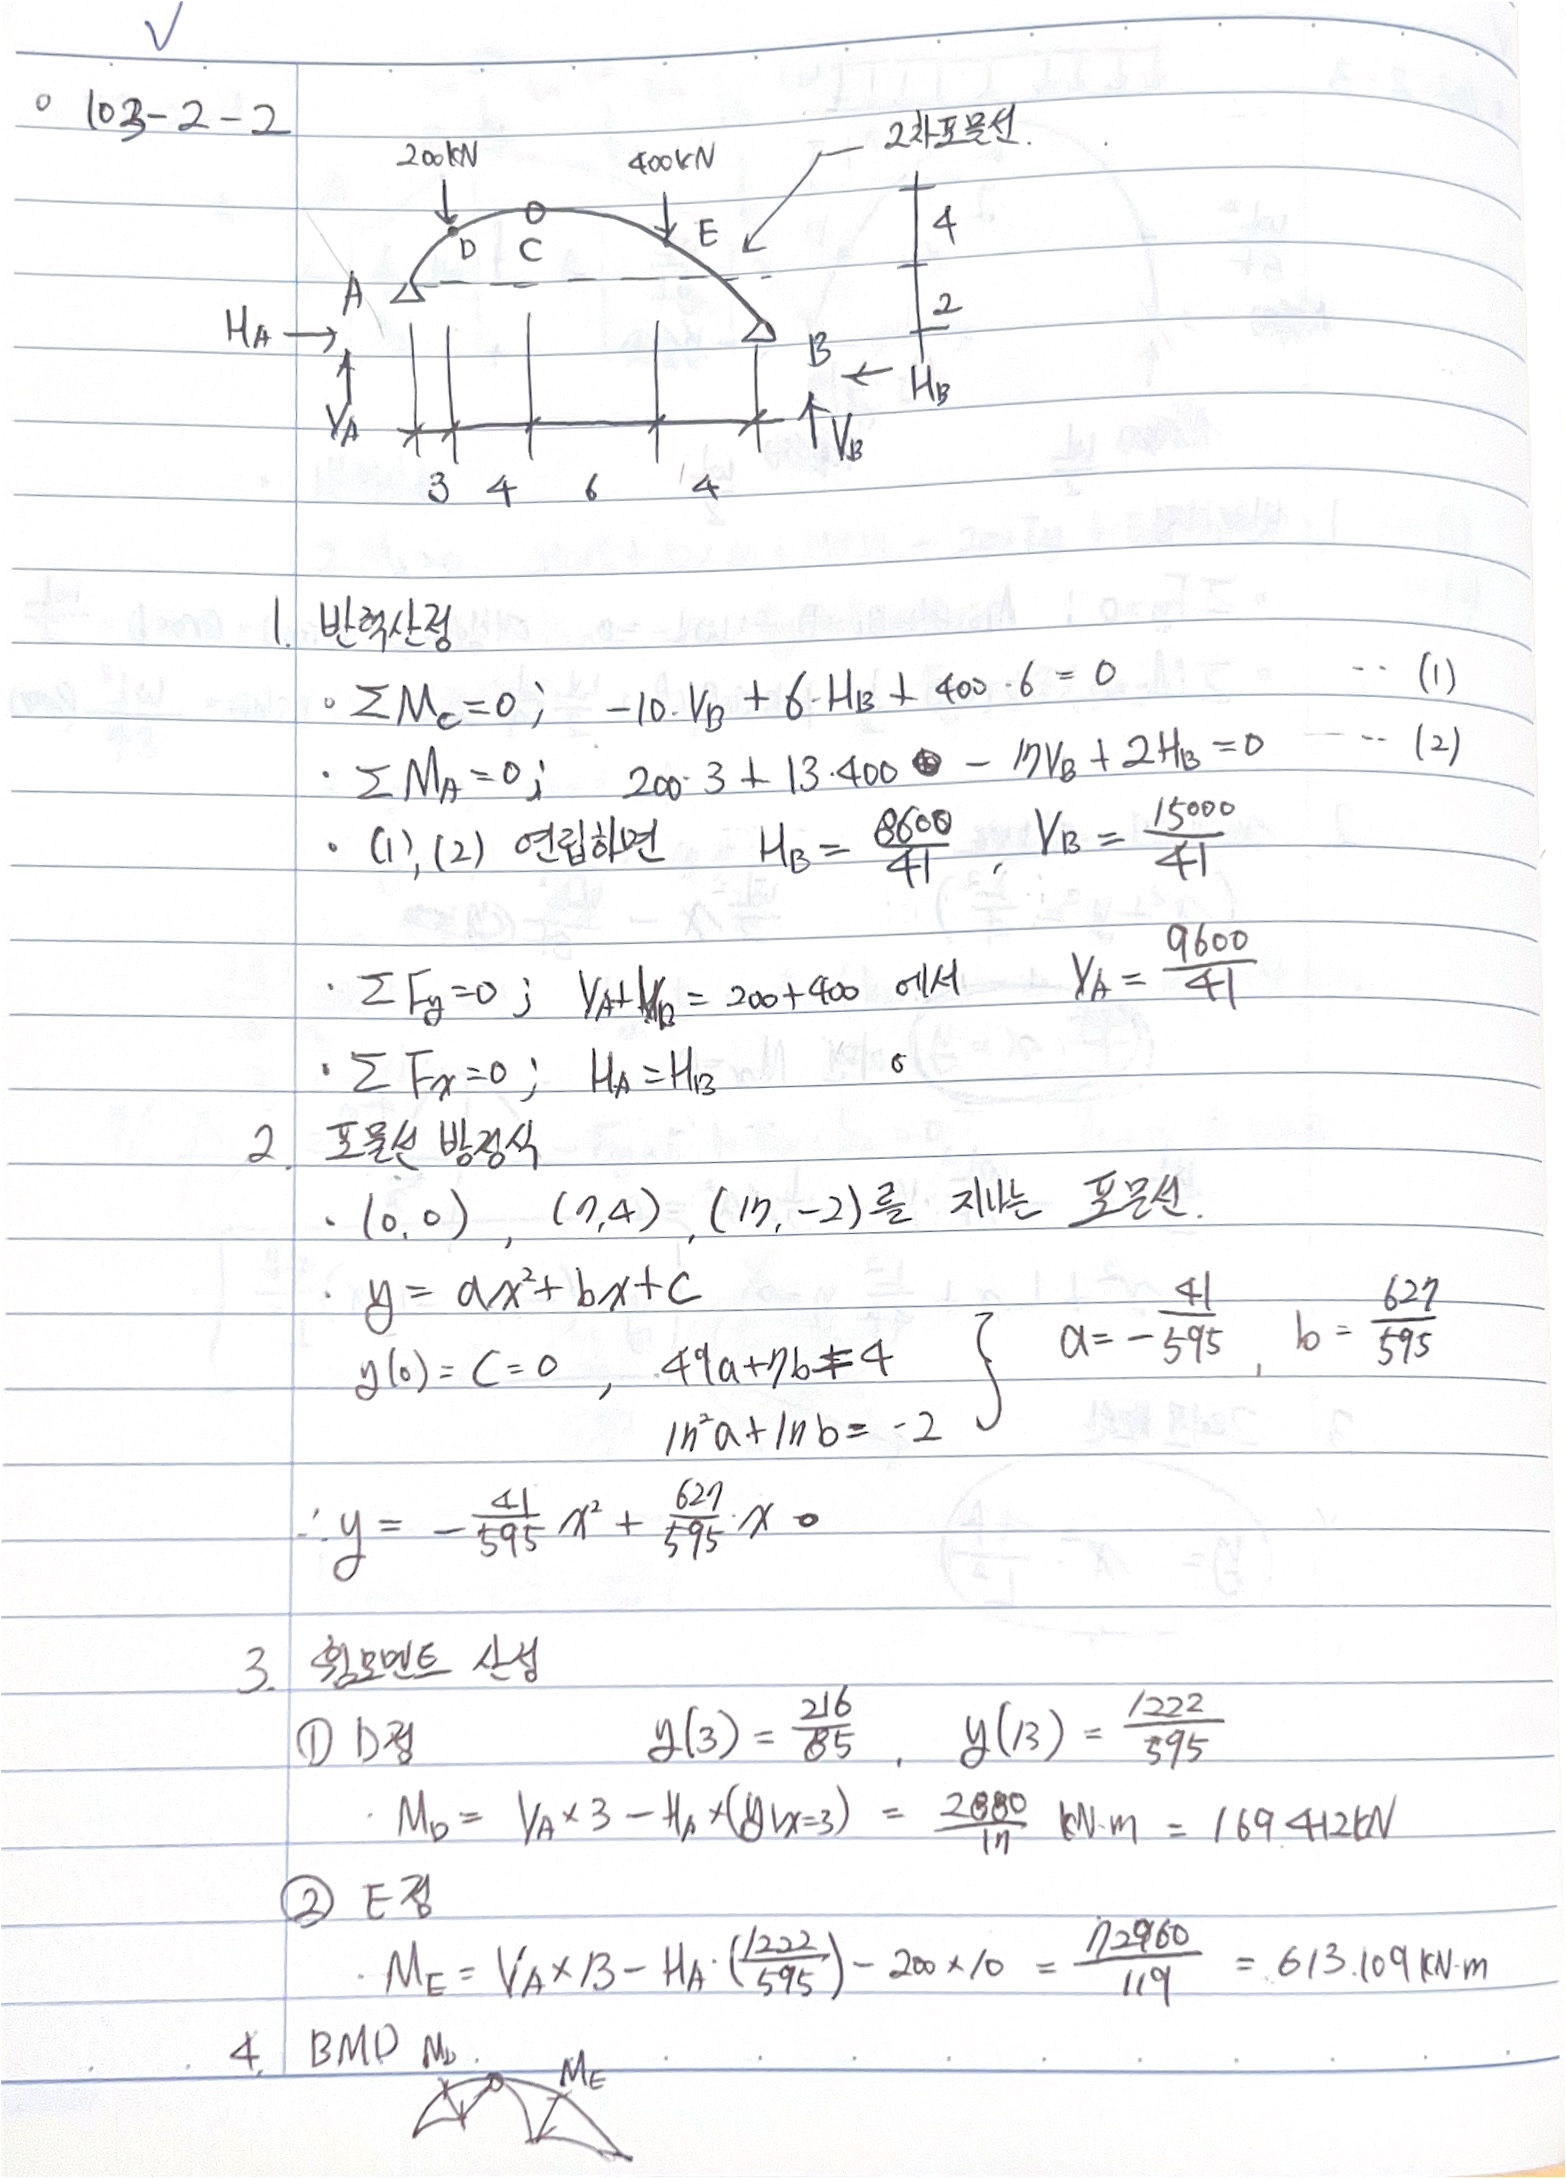 √
○ 103-2-2
200kN 400kN 2차포물선.
D C E 4
A 2
H_A → B ← H_B
V_A V_B
3 4 6 4
1. 반력산정
· ΣM_C=0; -10·V_B + 6·H_B + 400·6 = 0 ··· (1)
· ΣM_A=0; 200·3 + 13·400 - 17V_B + 2H_B = 0 ···· (2)
· (1), (2) 연립하면 H_B = 8600/41, V_B = 15000/41
· ΣF_y=0; V_A+V_B = 200+400 에서 V_A = 9600/41
· ΣF_x=0; H_A = H_B
2. 포물선 방정식
· (0,0), (7,4), (17,-2)를 지나는 포물선.
· y = ax²+bx+c
y(0) = C = 0, 49a+7b=4 } a = -41/595, b = 627/595
17²a+17b = -2
∴ y = -41/595 x² + 627/595·x
3. 휨모멘트 산정
① D점 y(3) = 216/85, y(13) = 1222/595
· M_D = V_A×3 - H_A×(y|x=3) = 2880/17 kN·m = 169.412kN
② E점
· M_E = V_A×13 - H_A·(1222/595) - 200×10 = 72960/119 = 613.109kN·m
4. BMD M_D M_E